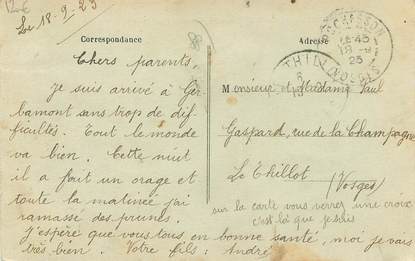 Le 18-9-25
Correspondance
Chers parents,
je suis arrivé à Ger
bamont sans trop de dif-
ficultés. Tout le monde
va bien. Cette nuit
il a fait un orage et
toute la matinée j'ai
ramassé des prunes.
J'espère que vous tous en bonne santé, moi je vais
très bien. Votre fils: André
Adresse
Monsieur et Madame Paul
Gaspard, rue de la Champagne
Le Thillot
(Vosges)
sur la carte vous verrez une croix
c'est là que je suis
18-9
25
THILLOT